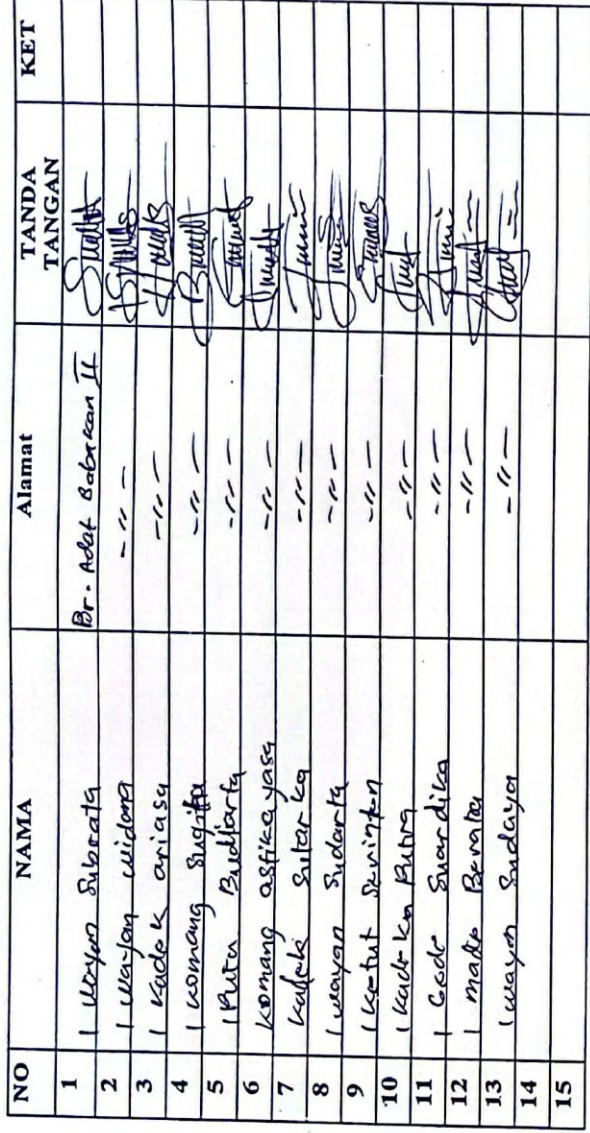 NO NAMA Alamat TANDA TANGAN KET
1 I Wayan Subrata Br. Adat Babakan II
2 I Wayan Widana -〃-
3 I Kadek ariasa -〃-
4 I Komang Sugita -〃-
5 I Putu Budiarta -〃-
6 Komang astika yasa -〃-
7 Kadek Sutarka -〃-
8 I wayan Sudarta -〃-
9 I Ketut -〃-
10 I Kadek Putra -〃-
11 I Gede Suardika -〃-
12 I made Barata -〃-
13 I wayan Sudaya -〃-
14
15